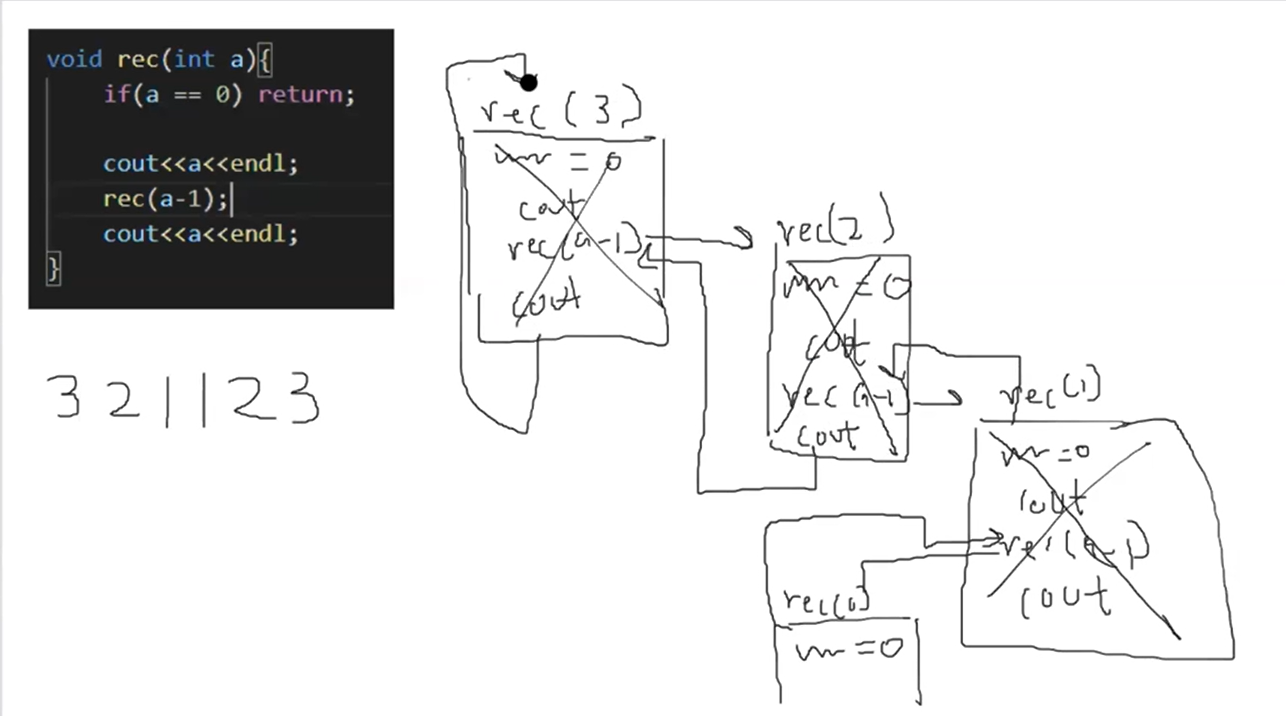 void rec(int a){
if(a == 0) return;
cout<<a<<endl;
rec(a-1);
cout<<a<<endl;
}
3 2 1 1 2 3
rec(3)
= 0
cout
rec(a-1)
cout
rec(2)
= 0
cout
rec(a-1)
cout
rec(1)
=0
cout
rec(a-1)
cout
rec(0)
=0